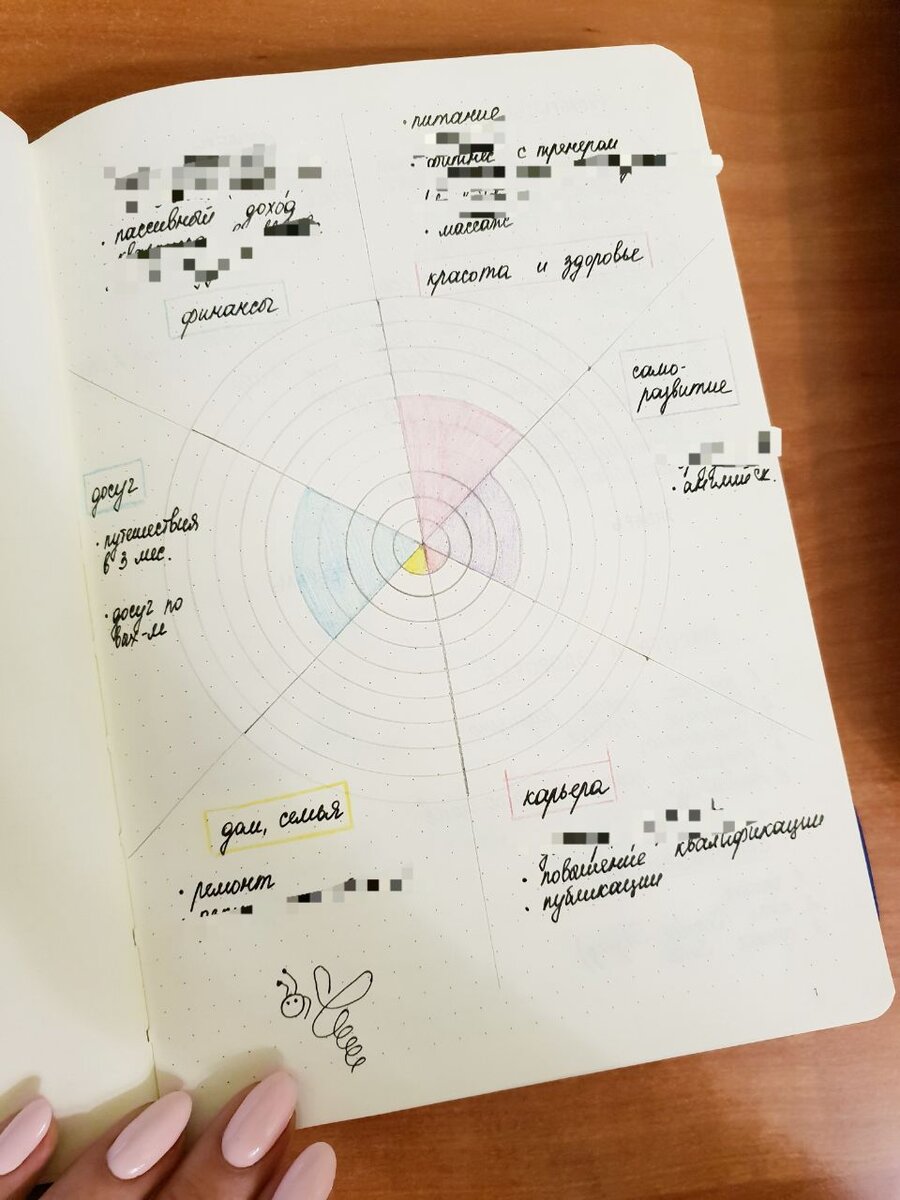 • пассивный доход
финансы
• питание
с тренером
• массаж
красота и здоровье
само-
развитие
• английск.
досуг
• путешествия
в 3 мес.
• досуг по
вых-м
дом, семья
• ремонт
карьера
• повышение квалификации
• публикации
1